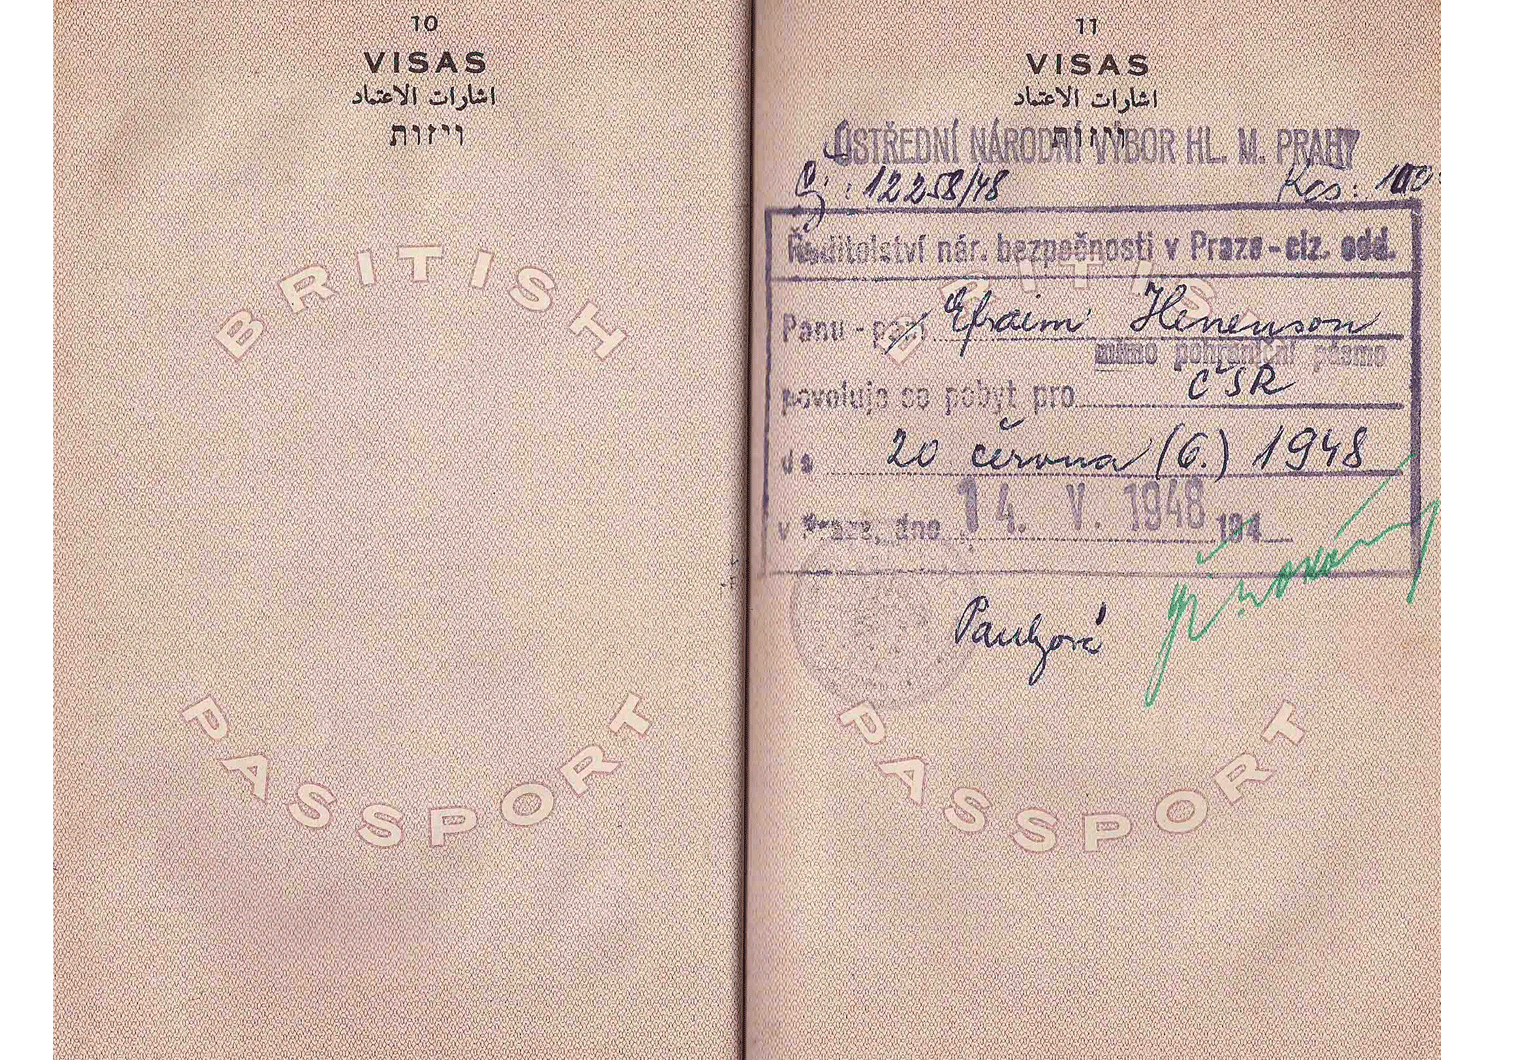 10
VISAS
اشارات الاعتماد
ויזות
BRITISH
PASSPORT
11
VISAS
اشارات الاعتماد
ויזות
ÚSTŘEDNÍ NÁRODNÍ VÝBOR HL. M. PRAHY
Čj: 12258/48 Kčs: 100
Ředitelství nár. bezpečnosti v Praze - ciz. odd.
Panu - paní Efraim Henenson
mimo pohraniční pásmo
povoluje se pobyt pro ČSR
do 20 června (6.) 1948
v Praze, dne 14. V. 1948 194
BRITISH
PASSPORT